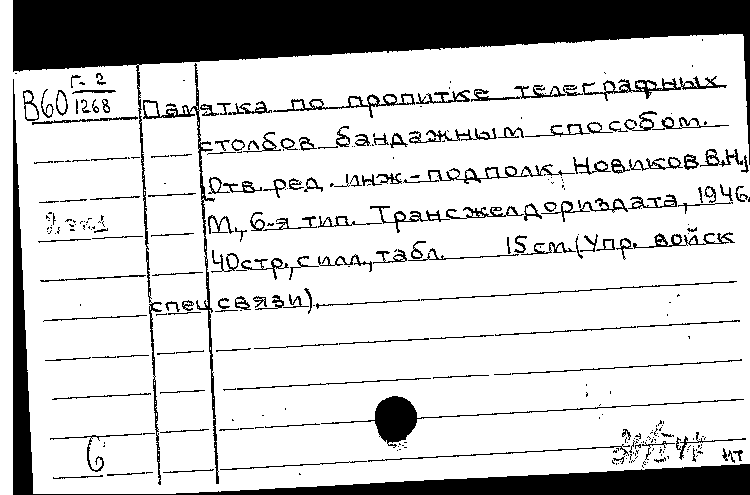 В60 Г-2
1268
Памятка по пропитке телеграфных
столбов бандажным способом.
[Отв. ред. инж.-подполк. Новиков В.Н.]
М., 6-я тип. Трансжелдориздата, 1946.
40стр., с илл., табл. 15 см. (Упр. войск
спецсвязи).
2 экз
6
нт